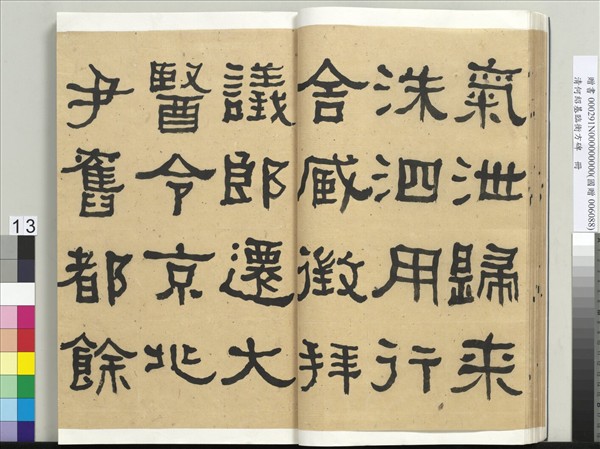 氣泄歸来
洙泗用行
舍臧徵拜
議郎遷大
醫令京兆
尹舊都餘
贈書 000291N000000000(國贈 006088)
清何紹基臨衡方碑 冊
13